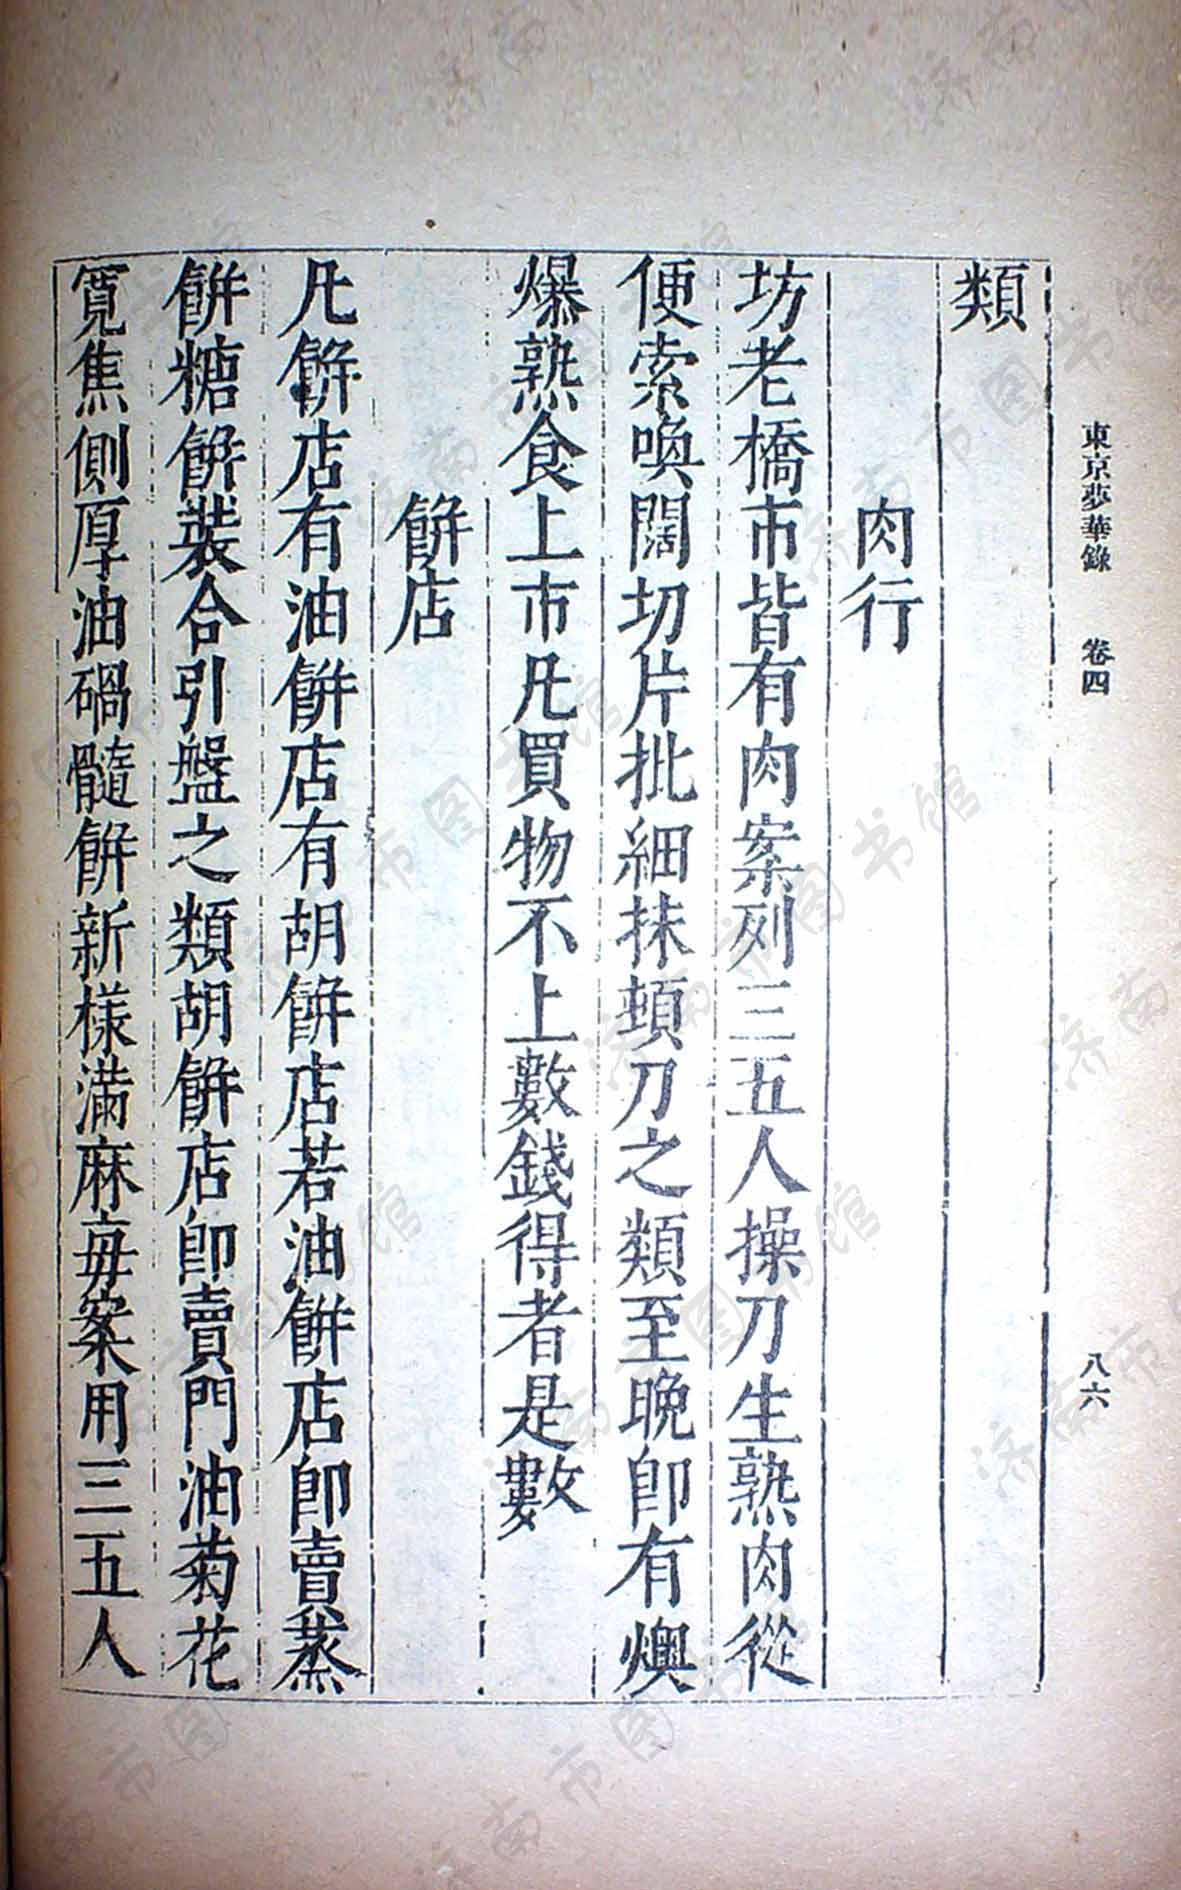 東京夢華錄　卷四
八六
類
肉行
坊老橋市皆有肉案列三五人操刀生熟肉從
便索喚闊切片批細抹頓刀之類至晚卽有燠
爆熟食上市凡買物不上數錢得者是數
餅店
凡餅店有油餅店有胡餅店若油餅店卽賣蒸
餅糖餅裝合引盤之類胡餅店卽賣門油菊花
寬焦側厚油碢髓餅新樣滿麻每案用三五人
济南市图书馆